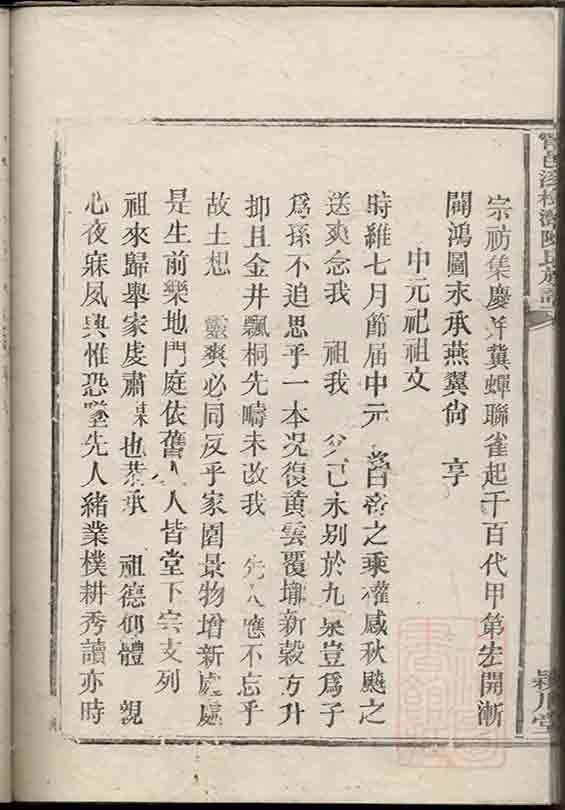 宗祊集慶并冀蟬聯雀起千百代甲第宏開漸
闢鴻圖永承燕翼尙 享
中元祀祖文
時維七月節届中元 當白帝之乘權感秋颷之
送爽念我 祖我 父已永别於九泉豈爲子
爲孫不追思乎一本况復黄雲覆壠新穀方升
抑且金井飄桐先疇未改我 先人應不忘乎
故土想 靈爽必同反乎家園景物增新處處
是生前樂地門庭依舊人人皆堂下宗支列
祖來歸舉家虔肅 也恭承 祖德仰體 親
心夜寐夙興惟恐墜先人緒業樸耕秀讀亦時
陳氏族譜
潁川堂